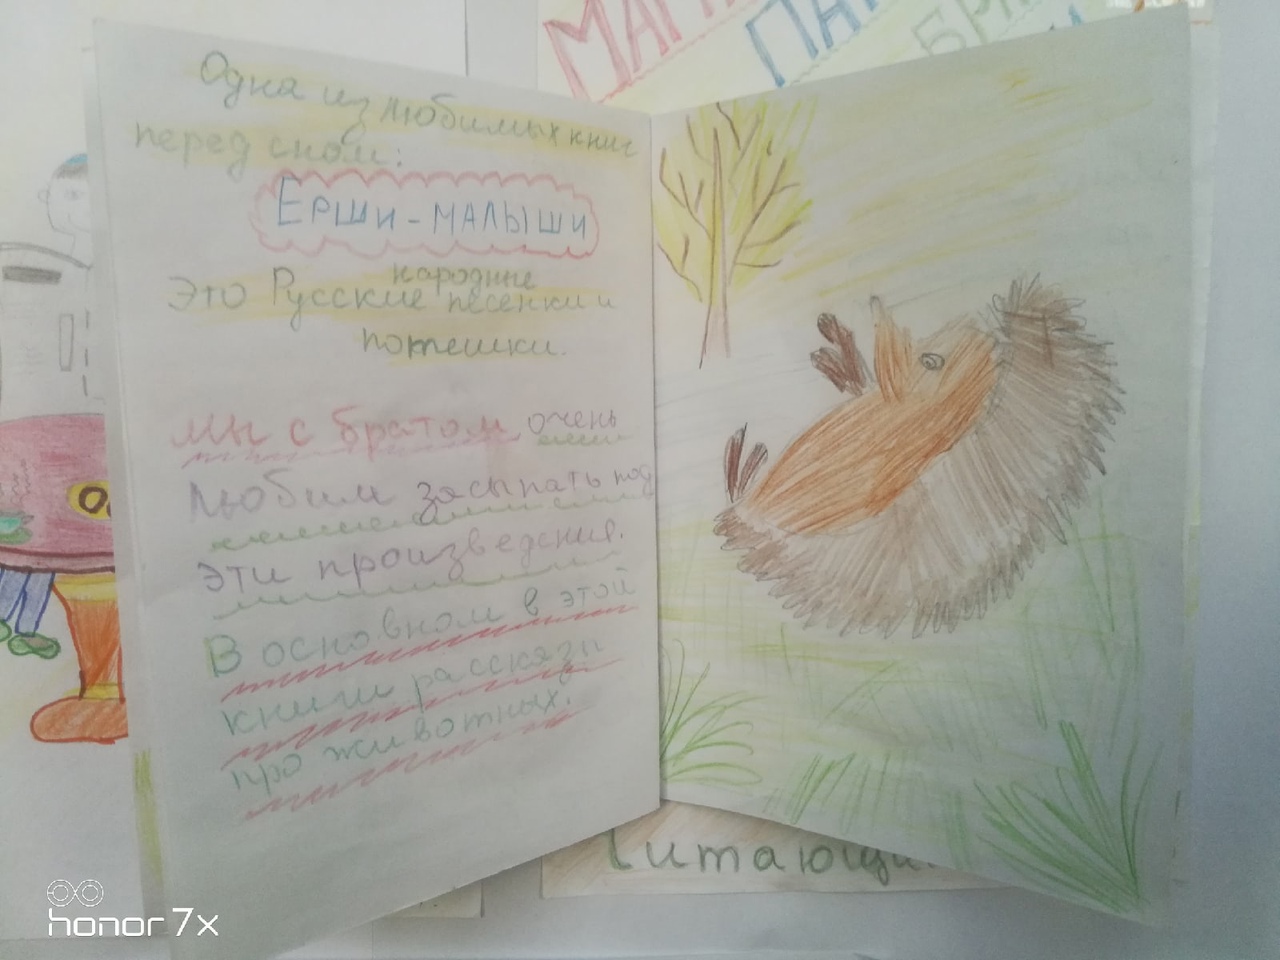 Одна из любимых книг
перед сном:
ЕРШИ-МАЛЫШИ
народные
Это Русские песенки и
потешки.
мы с братом очень
любим засыпать под
эти произведения.
В основном в этой
книги рассказы
про животных.
honor 7x